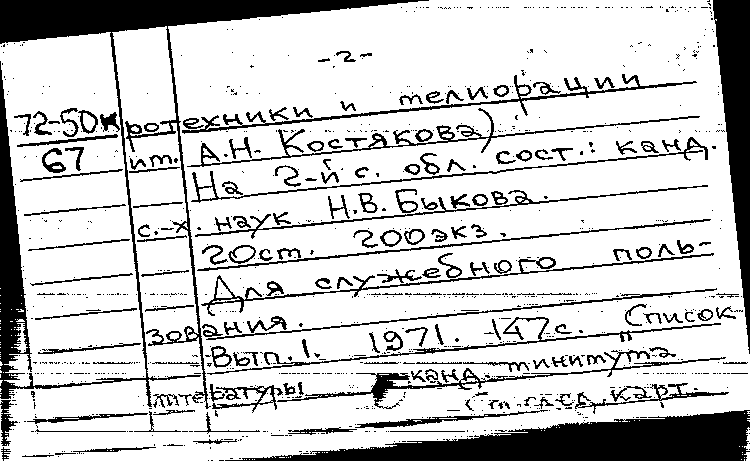 -2-
72-50к ротехники и мелиорации
67 им. А.Н. Костякова)
На 2-й с. обл. сост.: канд.
с.-х. наук Н.В. Быкова.
20 ст. 200 экз.
Для служебного поль-
зования.
Вып. 1. 1971. 147 с. "Список
литературы канд. минимума
См. след. карт.